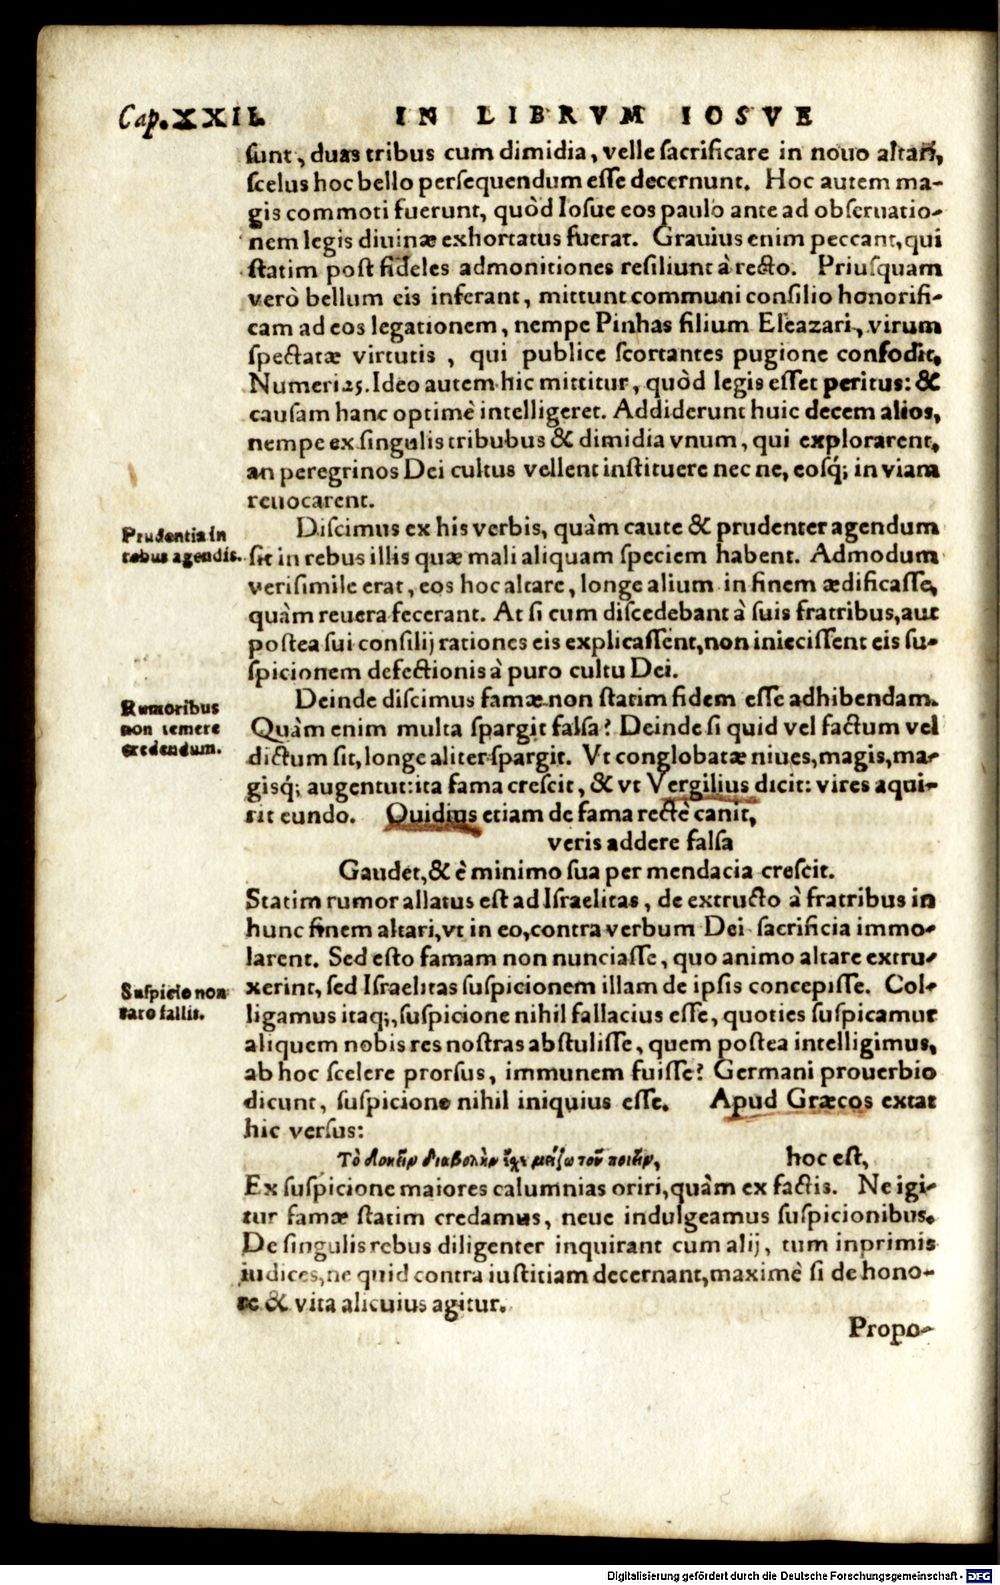 Cap. XXII. IN LIBRVM IOSVE
sunt, duas tribus cum dimidia, velle sacrificare in nouo altari,
scelus hoc bello persequendum esse decernunt. Hoc autem ma-
gis commoti fuerunt, quòd Iosue eos paulo ante ad obseruatio-
nem legis diuinæ exhortatus fuerat. Grauius enim peccant, qui
statim post fideles admonitiones resiliunt à recto. Priusquam
verò bellum eis inferant, mittunt communi consilio honorifi-
cam ad eos legationem, nempe Pinhas filium Eleazari, virum
spectatæ virtutis, qui publice scortantes pugione confodit,
Numeri 25. Ideo autem hic mittitur, quòd legis esset peritus: &
causam hanc optimè intelligeret. Addiderunt huic decem alios,
nempe ex singulis tribubus & dimidia vnum, qui explorarent,
an peregrinos Dei cultus vellent instituere nec ne, eosq́; in viam
reuocarent.
Discimus ex his verbis, quàm caute & prudenter agendum
Prudentia in
rebus agendis.
sit in rebus illis quæ mali aliquam speciem habent. Admodum
verisimile erat, eos hoc altare, longe alium in finem ædificasse,
quàm reuera fecerant. At si cum discedebant à suis fratribus, aut
postea sui consilij rationes eis explicassent, non iniecissent eis su-
spicionem defectionis à puro cultu Dei.
Deinde discimus famæ non statim fidem esse adhibendam.
Rumoribus
non temere
credendum.
Quàm enim multa spargit falsa? Deinde si quid vel factum vel
dictum sit, longe aliter spargit. Vt conglobatæ niues, magis, ma-
gisq́; augentut: ita fama crescit, & vt Vergilius dicit: vires aqui-
rit eundo. Ouidius etiam de fama rectè canit,
veris addere falsa
Gaudet, & è minimo sua per mendacia crescit.
Statim rumor allatus est ad Israelitas, de extructo à fratribus in
hunc finem altari, vt in eo, contra verbum Dei sacrificia immo-
larent. Sed esto famam non nunciasse, quo animo altare extru-
Suspicio non
raro fallit.
xerint, sed Israelitas suspicionem illam de ipsis concepisse. Col-
ligamus itaq;, suspicione nihil fallacius esse, quoties suspicamur
aliquem nobis res nostras abstulisse, quem postea intelligimus,
ab hoc scelere prorsus, immunem fuisse? Germani prouerbio
dicunt, suspicione nihil iniquius esse. Apud Græcos extat
hic versus:
Τὸ δοκεῖν διαβολὴν ἔχει μείζω τοῦ ποιεῖν, hoc est,
Ex suspicione maiores calumnias oriri, quàm ex factis. Ne igi-
tur famæ statim credamus, neue indulgeamus suspicionibus.
De singulis rebus diligenter inquirant cum alij, tum inprimis
iudices, ne quid contra iustitiam decernant, maximè si de hono-
re & vita alicuius agitur.
Propo-
Digitalisierung gefördert durch die Deutsche Forschungsgemeinschaft - DFG